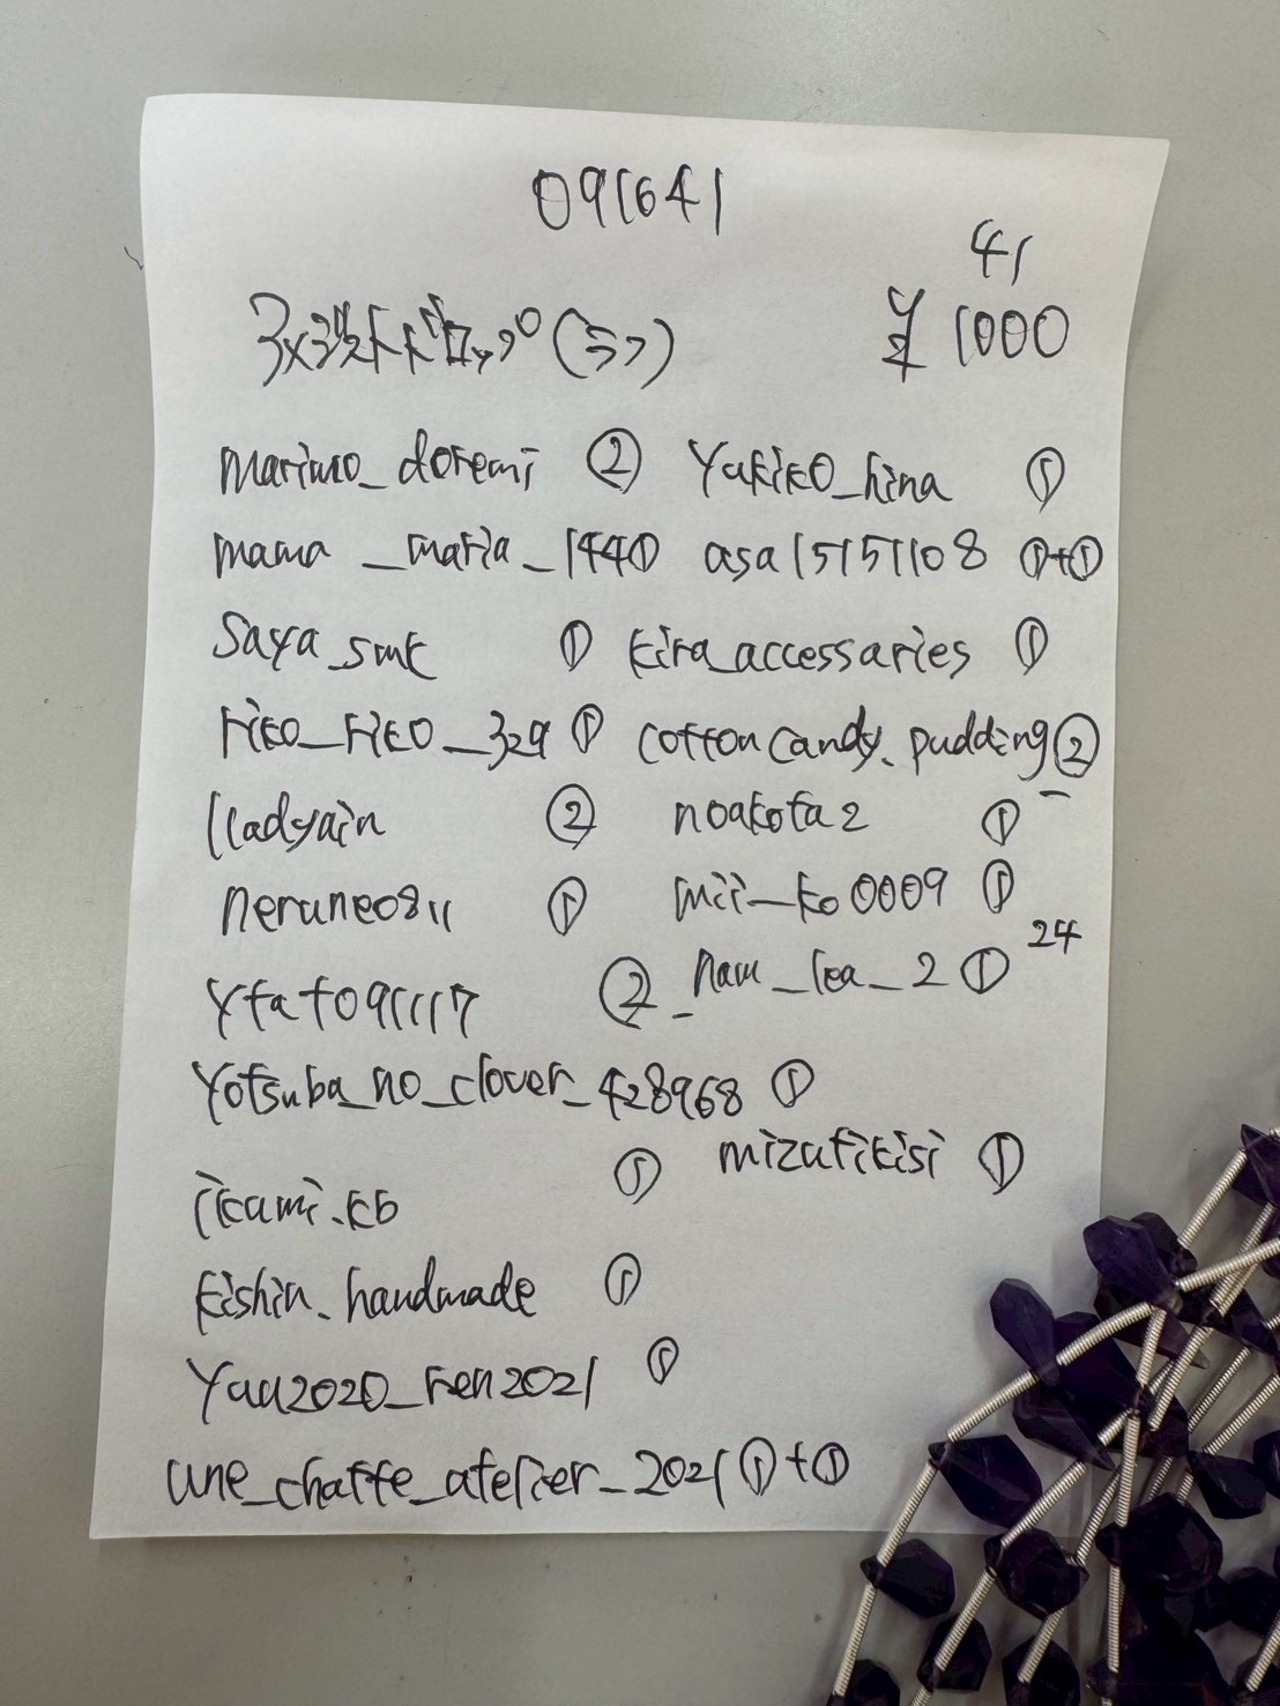 091641
41
¥1000
marimo_doremi ② Yukiko_hina ①
mama_maria_144① asa15151108 ①+①
saya_smk ① kira_accessaries ①
riko_riko_329 ① cottoncandy._pudding ②
lladyain ② noakota2 ①
nerune0811 ① mii_ko0009 ①
24
ytat091117 ② _nam_lea_2 ①
yotsuba_no_clover_428968 ①
ikumi.kb ① mizutikisi ①
kishin_handmade ①
yuu2020_ren2021 ①
une_chatte_atelier_2021 ①+①